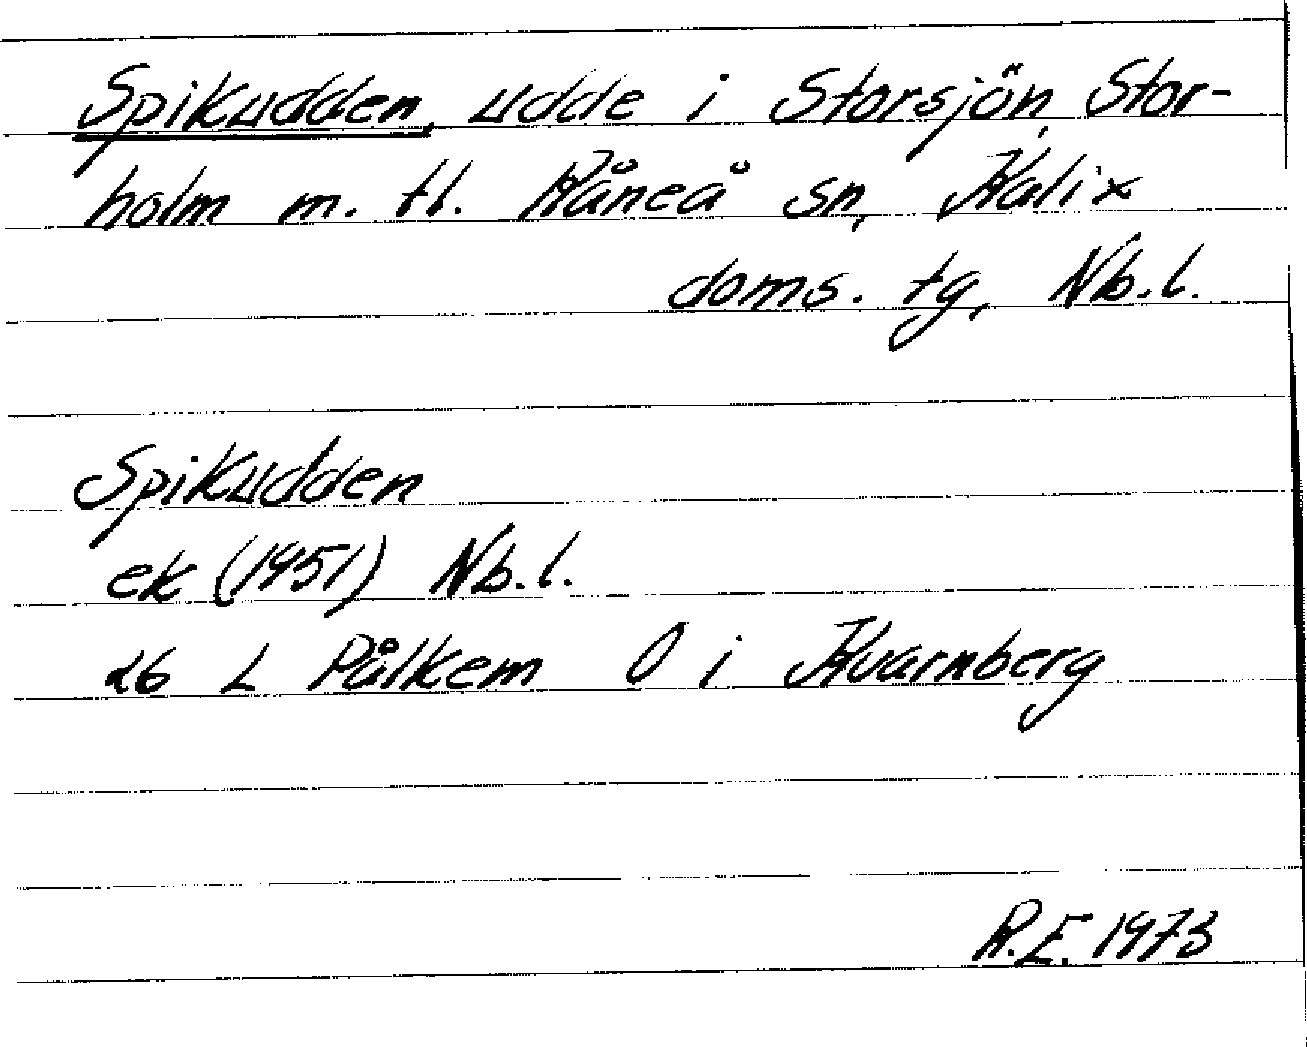 Spikudden, udde i Storsjön, Stor-
holm m. fl. Råneå sn, Kalix
doms. tg, Nb.l.
Spikudden
ek (1951) Nb.l.
26 L Pålkem O i Kvarnberg
R.E. 1973